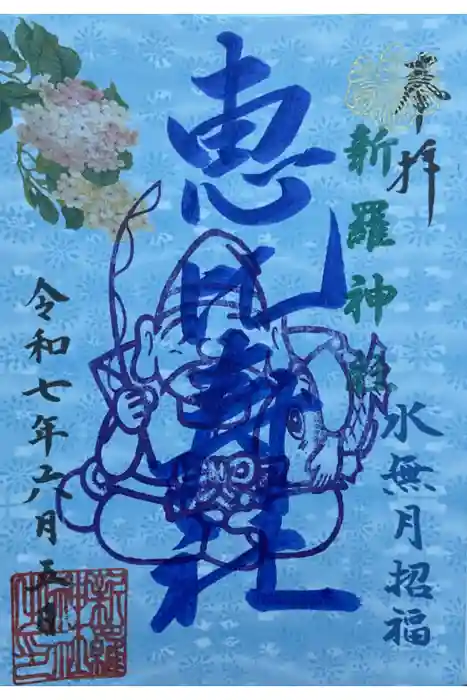 奉拝
新羅神社
水無月招福
恵比寿神社
令和七年六月五日
新羅神社之印